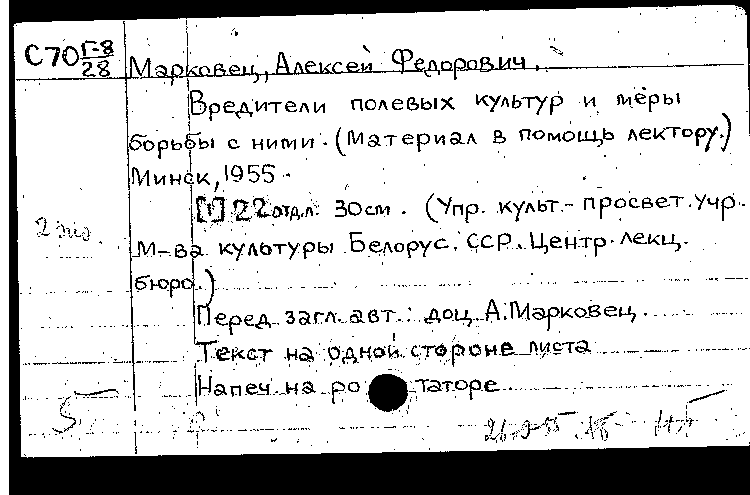 С70 Г-8/28 Марковец, Алексей Федорович.
Вредители полевых культур и меры
борьбы с ними. (Материал в помощь лектору.)
Минск, 1955.
[1] 22 отд.л. 30см. (Упр. культ.-просвет. учр.
2 экз.
М-ва культуры Белорус. ССР. Центр. лекц.
бюро.)
Перед загл. авт.: доц. А. Марковец.
Текст на одной стороне листа
Напеч. на ро таторе
5